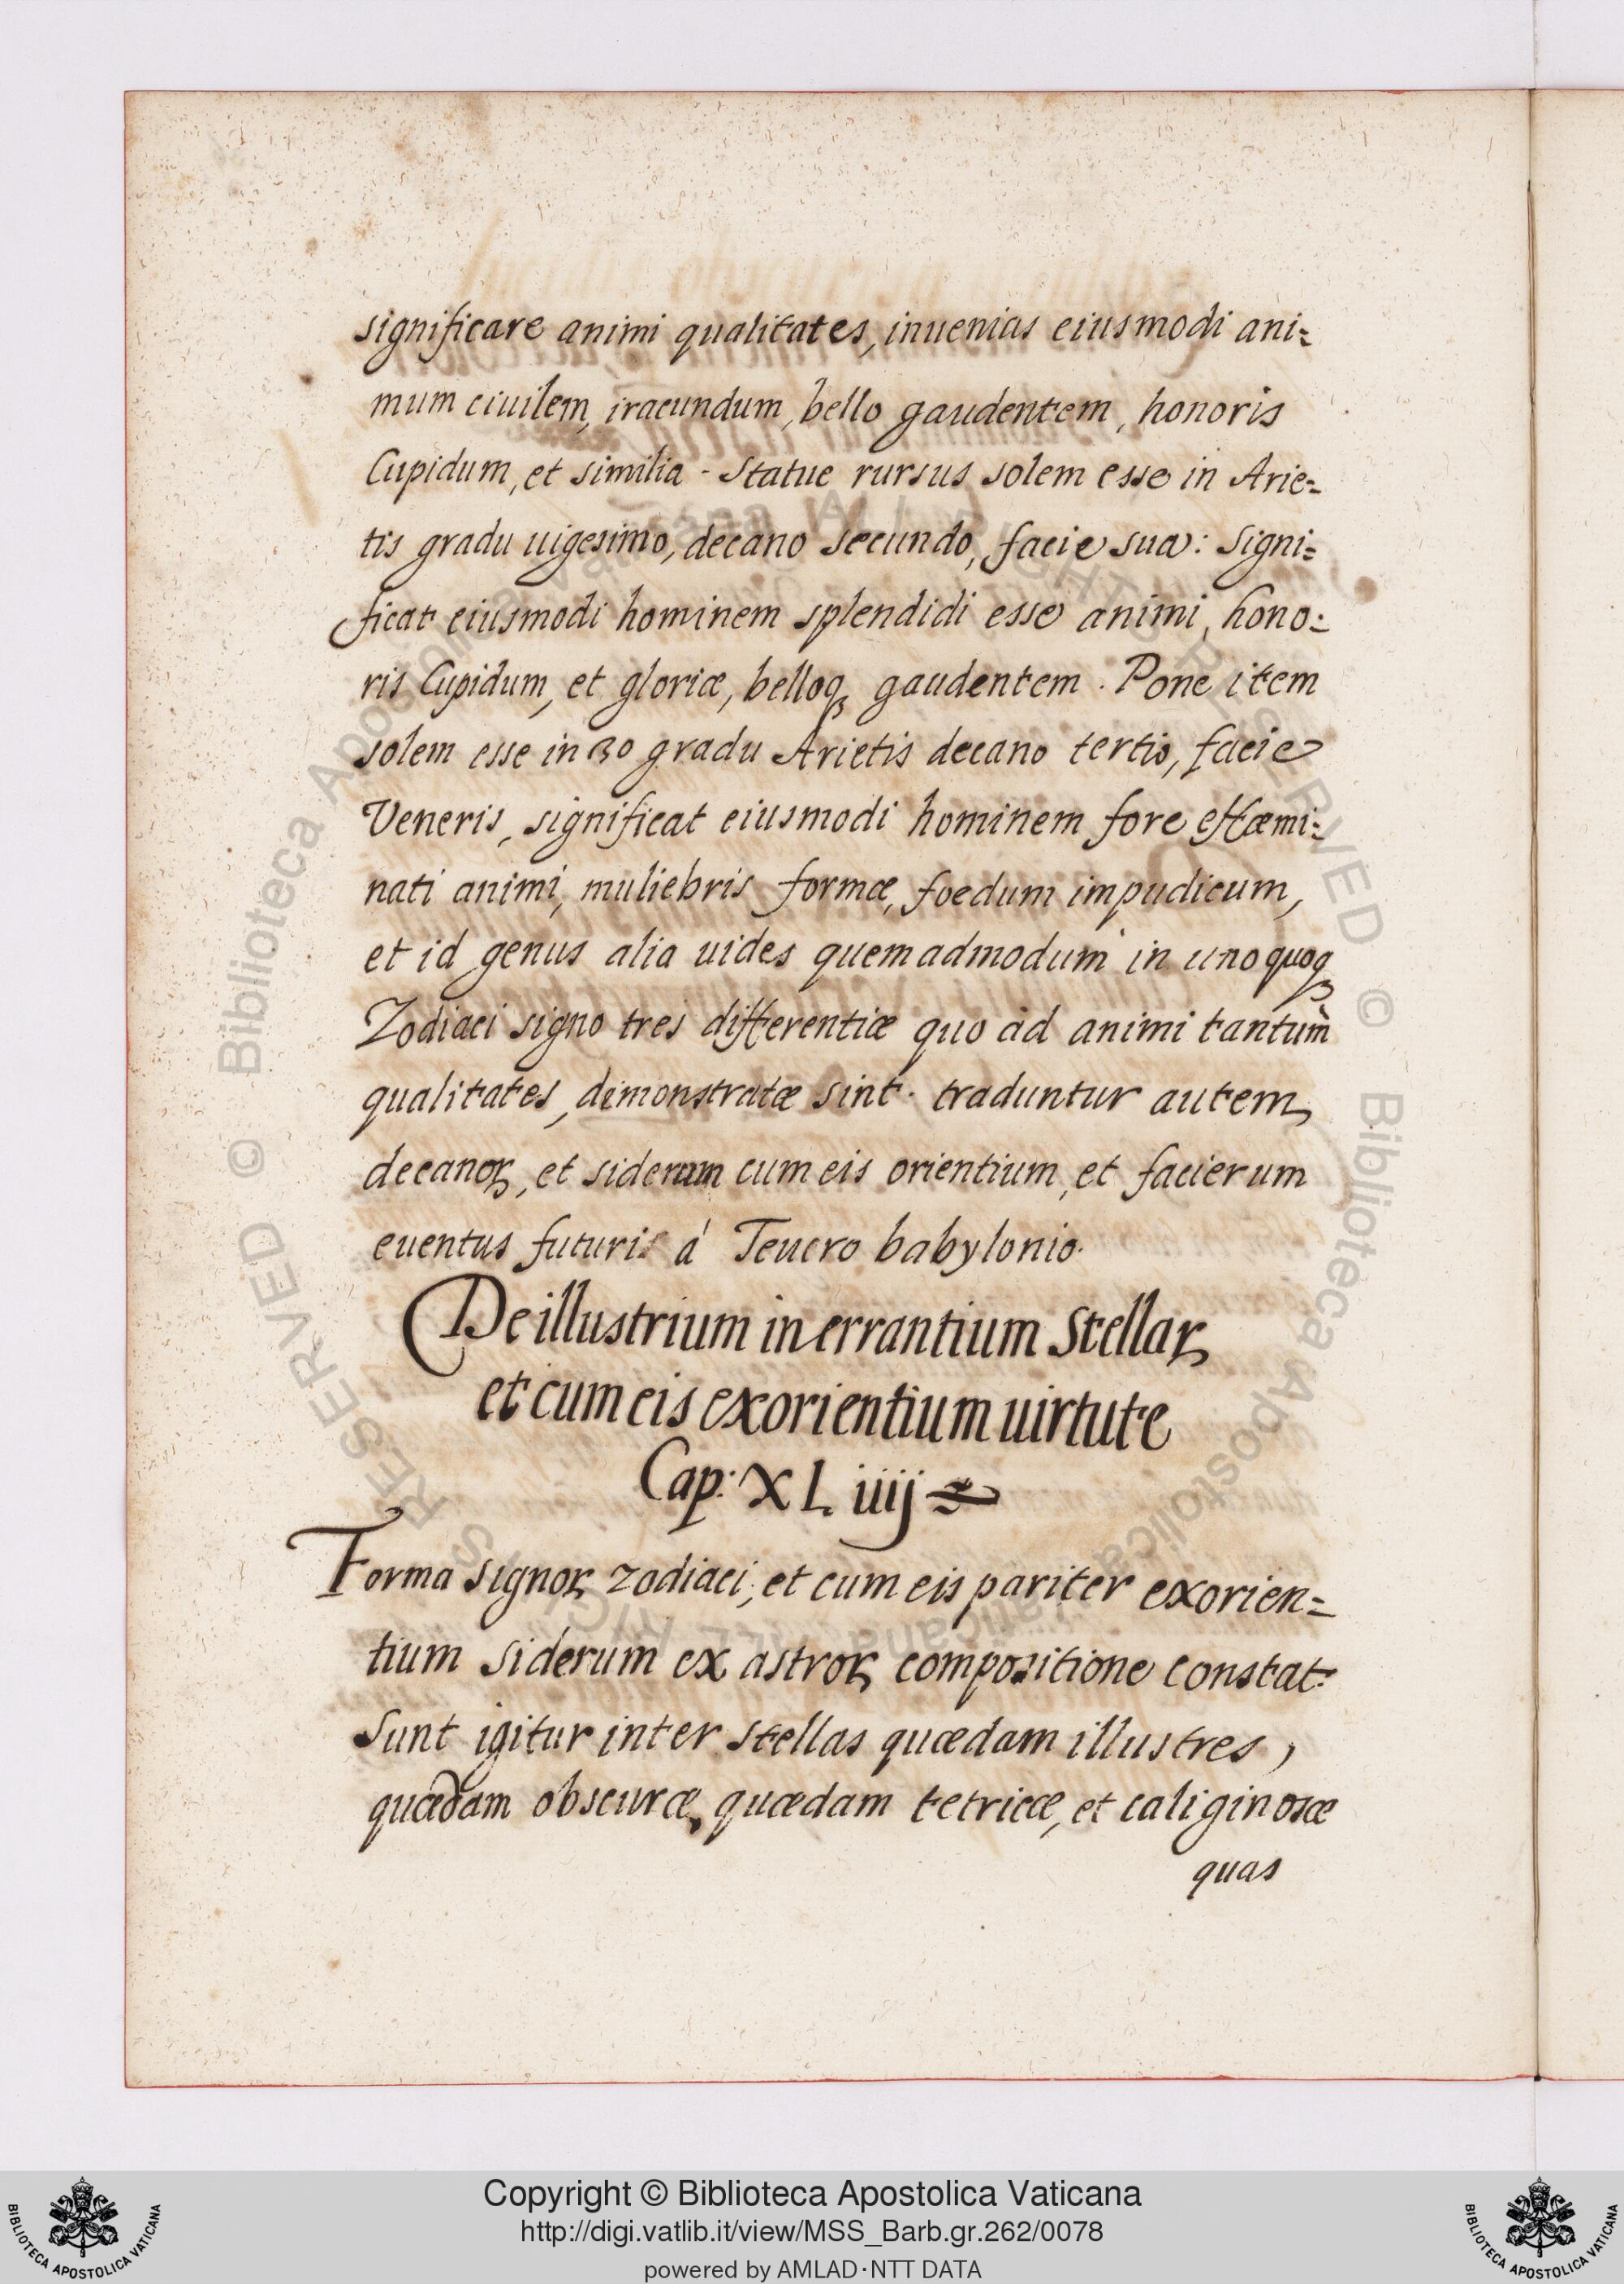 significare animi qualitates, inuenias eiusmodi ani=
mum ciuilem, iracundum, bello gaudentem, honoris
Cupidum, et similia. Statue rursus solem esse in Arie=
tis gradu uigesimo, decano secundo, facie sua: signi=
ficat eiusmodi hominem splendidi esse animi, hono=
ris Cupidum, et gloriæ, belloqꝫ gaudentem. Pone item
solem esse in 30 gradu Arietis decano tertio, facie
Veneris, significat eiusmodi hominem fore effæmi=
nati animi, muliebris formæ, foedum impudicum,
et id genus alia uides quemadmodum in unoquoqꝫ
Zodiaci signo tres differentiæ quo ad animi tantum
qualitates, demonstratæ sint. traduntur autem
decanoꝝ, et siderum cum eis orientium, et facierum
euentus futuris à Teucro babylonio.
De illustrium inerrantium Stellaꝝ
et cum eis exorientium uirtute
Cap: XL iiij
Forma signoꝝ zodiaci, et cum eis pariter exorien=
tium siderum ex astroꝝ compositione constat.
Sunt igitur inter stellas quædam illustres,
quædam obscuræ, quædam tetricæ, et caliginosæ
quas
© Biblioteca Apostolica Vaticana ALL RIGHTS RESERVED © Biblioteca Apostolica Vaticana ALL RIGHTS RESERVED
Copyright © Biblioteca Apostolica Vaticana
http://digi.vatlib.it/view/MSS_Barb.gr.262/0078
powered by AMLAD·NTT DATA
BIBLIOTECA APOSTOLICA VATICANA
BIBLIOTECA APOSTOLICA VATICANA